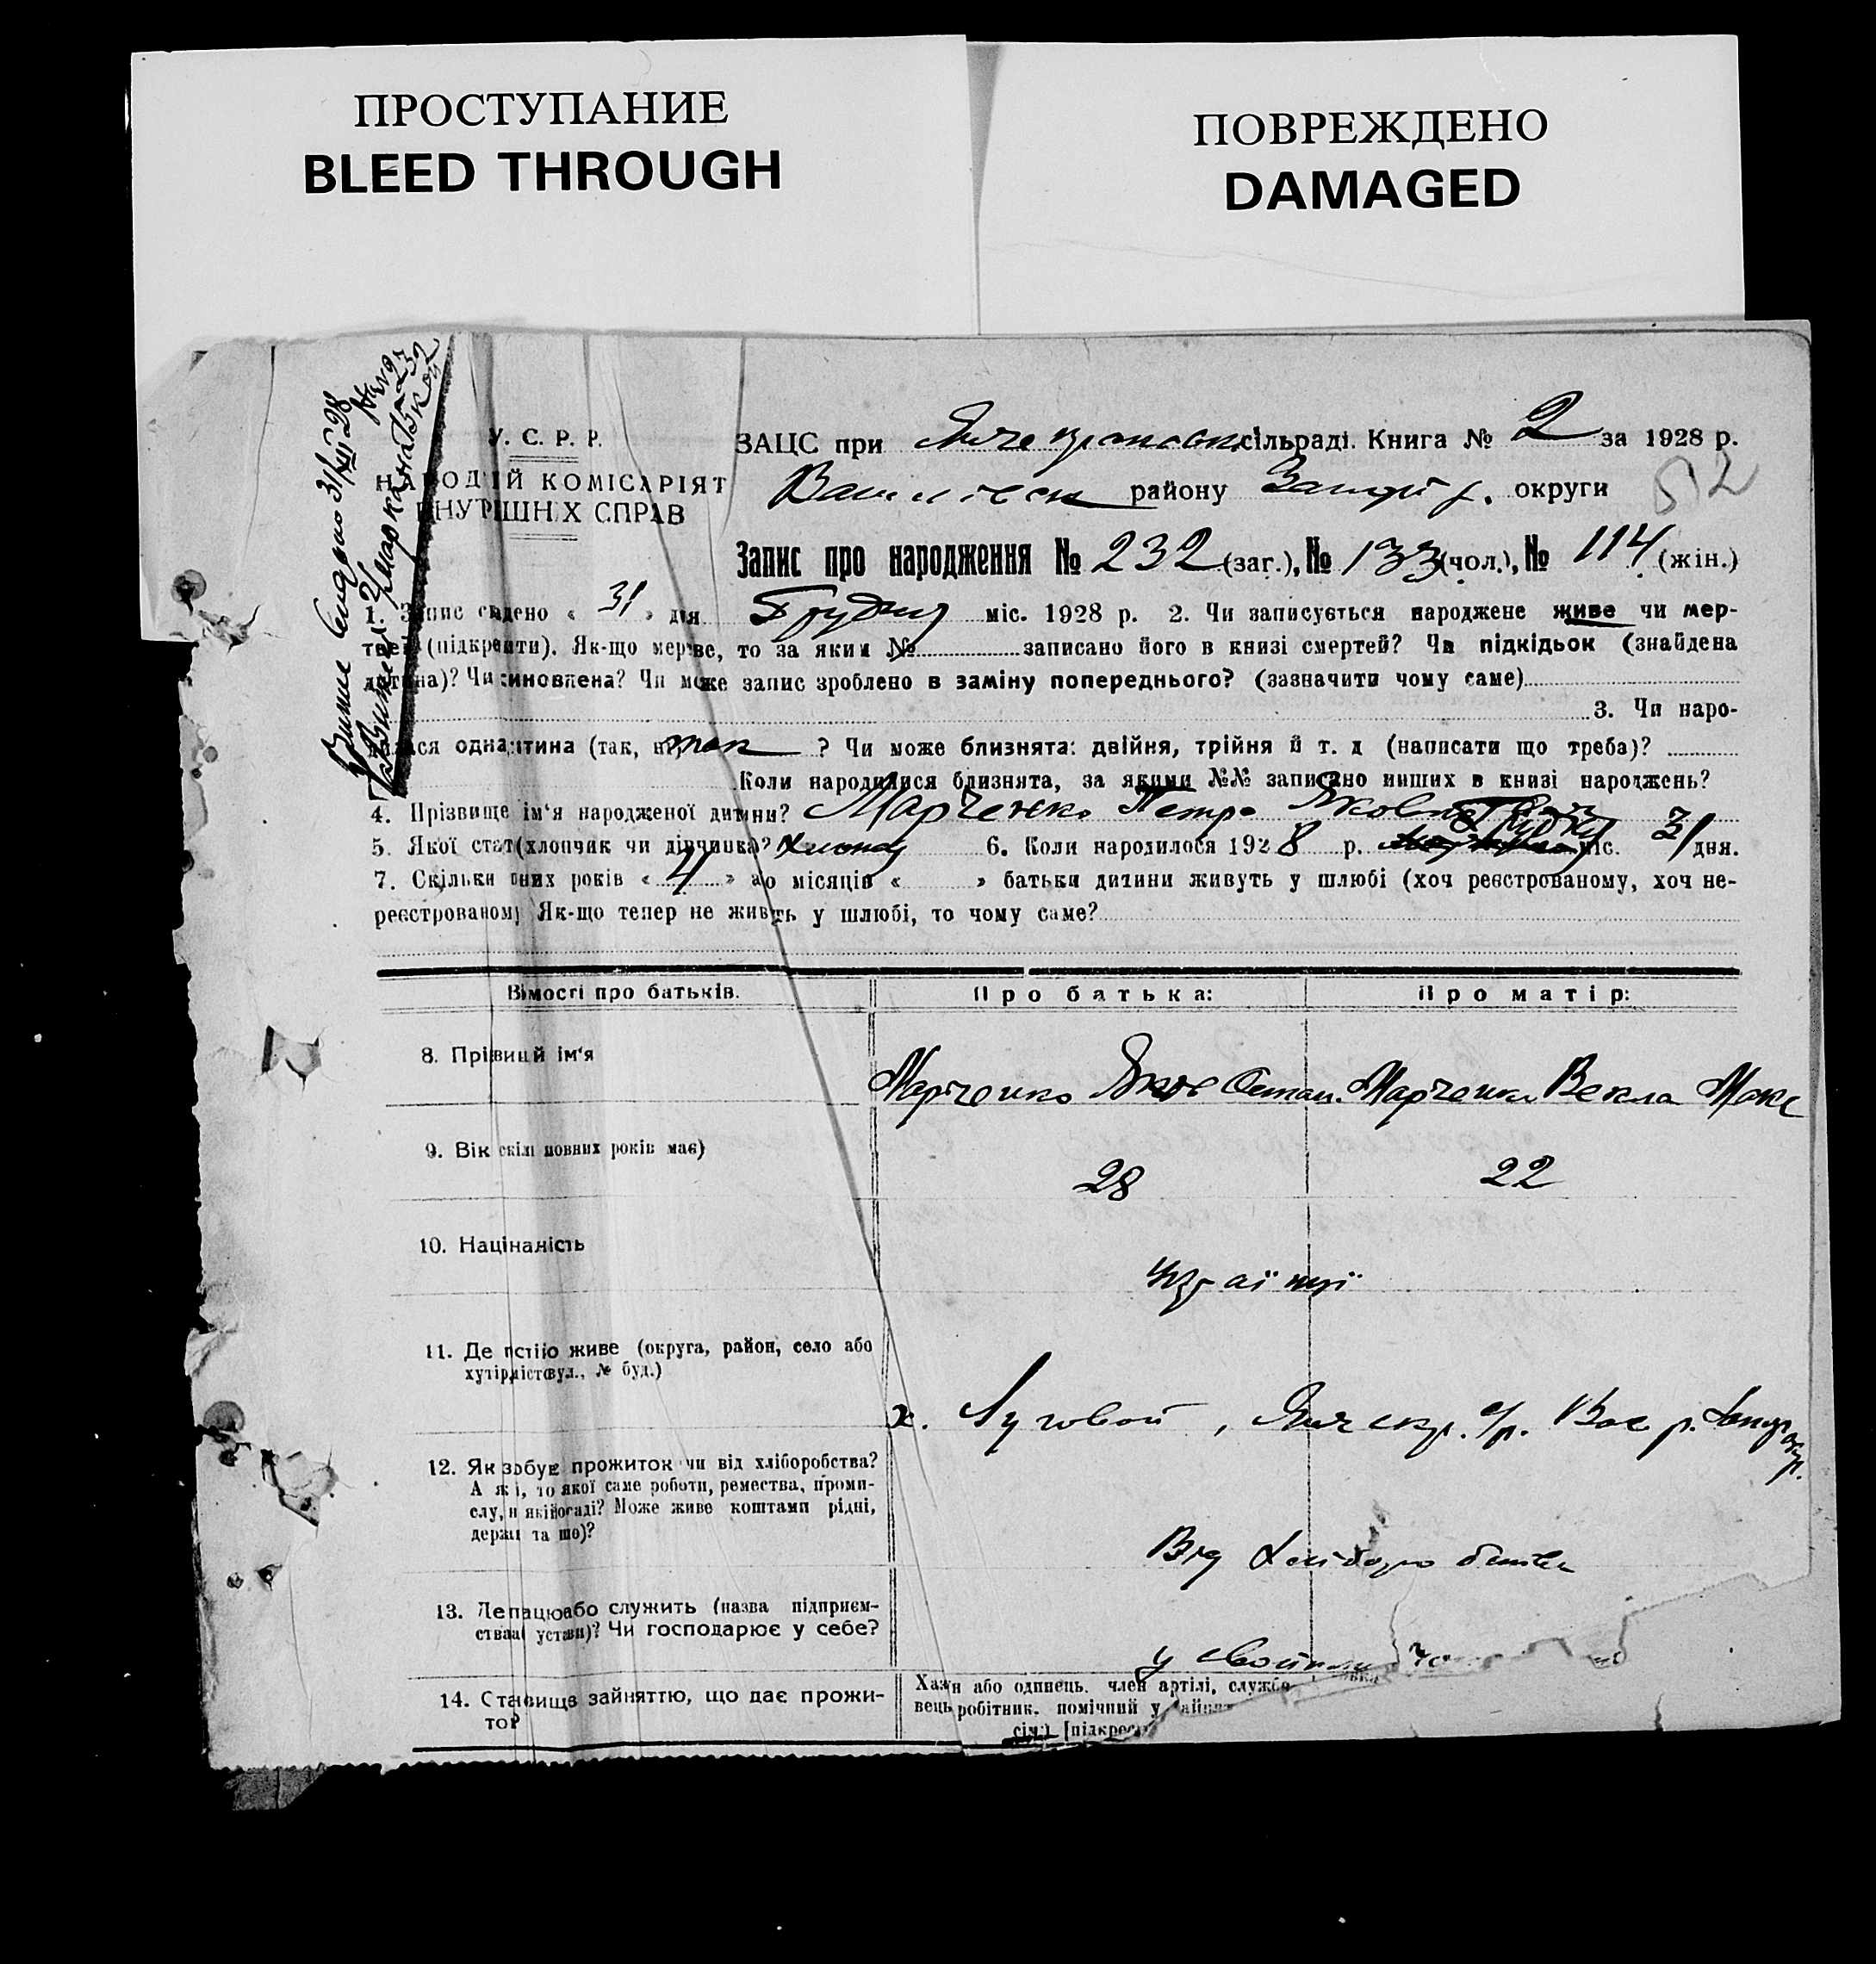 ПРОСТУПАНИЕ
BLEED THROUGH
ПОВРЕЖДЕНО
DAMAGED
У. С. Р. Р.
НАРОДНІЙ КОМІСАРІЯТ
ВНУТРІШНІХ СПРАВ
31/XII 28
ЗАЦС при сільраді. Книга № 2 за 1928 р.
Василівськ району Запоріз. округи
52
Запис про народження № 232 (заг.), № 133 (чол.), № 114 (жін.)
1. Запис складено « 31 » дня Грудня міс. 1928 р. 2. Чи записується народжене живе чи мер-
тве (підкреслити). Як-що мертве, то за яким № записано його в книзі смертей? Чи підкідьок (знайдена
дитина)? Чи синовлена? Чи може запис зроблено в заміну попереднього? (зазначити чому саме)
3. Чи наро-
дилася одна дитина (так, ні) так ? Чи може близнята: двійня, трійня й т. д (написати що треба)?
Коли народилися близнята, за якими №№ записано инших в книзі народжень?
4. Прізвище ім'я народженої дитини? Марченко Петро Яковлевич
5. Якої статі (хлопчик чи дівчинка)? Хлопец 6. Коли народилося 1928 р. Грудня міс. 31 дня.
7. Скільки повних років « 4 » або місяців « » батьки дитини живуть у шлюбі (хоч реєстрованому, хоч не-
реєстрованому) Як-що тепер не живуть у шлюбі, то чому саме?
Відомості про батьків.
Про батька:
Про матір:
8. Прізвище й ім'я
Марченко Яков Остап. Марченко Векла Макс
9. Вік (скільки повних років має)
28
22
10. Національність
Україці
11. Де постійно живе (округа, район, село або
хутір, місто, вул., № буд.)
х. Луговой, Янчекр. с/р. Вас р. Запор окр.
12. Як здобуває прожиток чи від хліборобства?
А як ні, то якої саме роботи, ремества, проми-
слу, на якій посаді? Може живе коштами рідні,
держави та що)?
Від Хліборобства
13. Де працює або служить (назва підприєм-
ства або установи)? Чи господарює у себе?
у свойому
14. Становище зайняттю, що дає прожи-
ток?
Хазяїн або одинець. член артілі, службо-
вець робітник. помічний у зайнят
сім'ї [підкресл